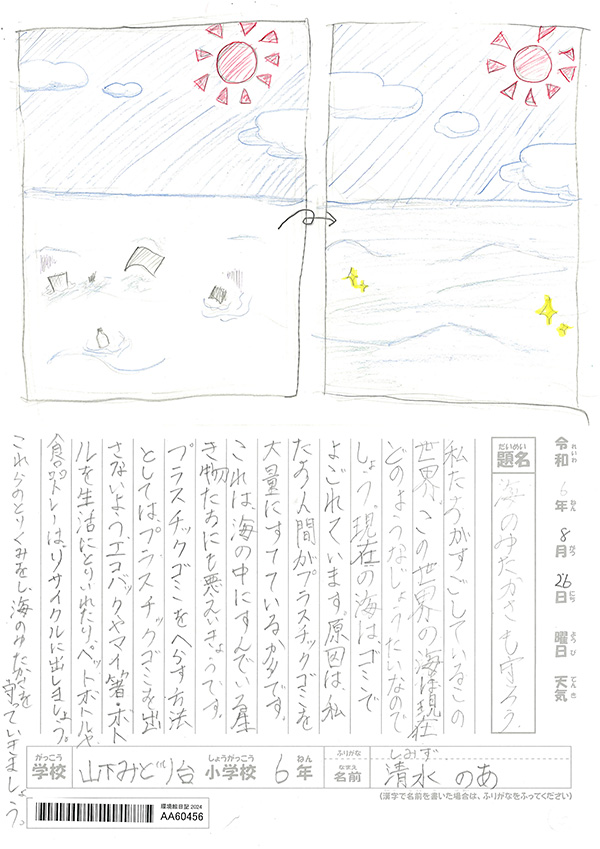 令和6年8月26日 曜日 天気
れいわ ねん がつ にち ようび てんき
だいめい
題名 海のゆたかさを守ろう
私たちがすごしているこの
世界、この世界の海は現在
どのようなじょうたいなので
しょう。現在の海はゴミで
よごれています。原因は、私
たち人間がプラスチックゴミを
大量にすてているからです。
これは、海の中にすんでいる生
き物たちにも悪えいきょうです。
プラスチックゴミをへらす方法
としては、プラスチックゴミを出
さないよう、エコバックやマイ箸・ボト
ルを生活にとりいれたり、ペットボトルや
食品トレーは、リサイクルに出しましょう。
これらのとりくみをし、海のゆたかさを
守っていきましょう。
がっこう しょうがっこう ねん
学校 山下みどり台 小学校 6年
ふりがな しみず
なまえ
名前 清水 のあ
(漢字で名前を書いた場合は、ふりがなをふってください)
環境絵日記 2024
AA60456